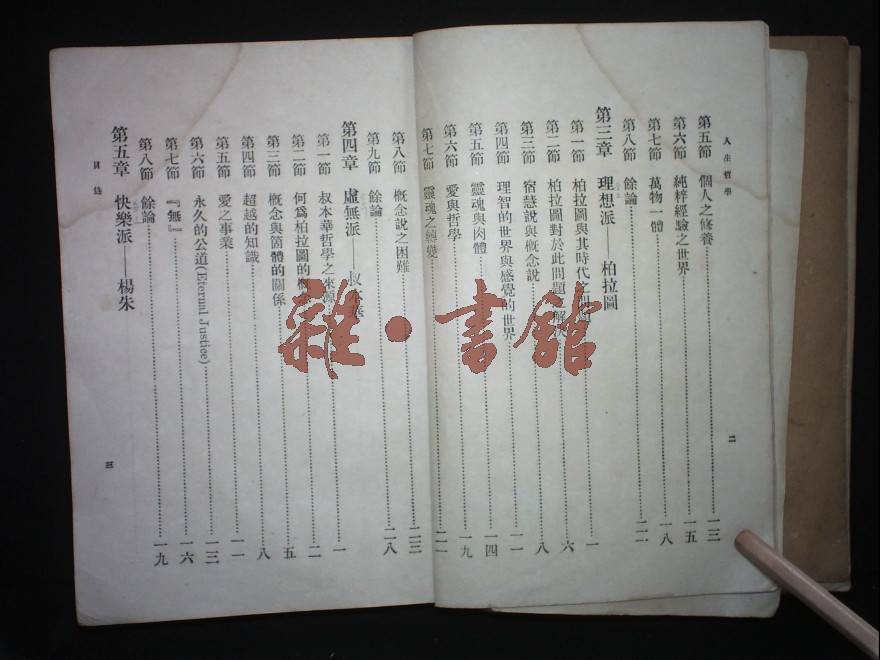 人生哲學
二
第五節 個人之修養 一三
第六節 純粹經驗之世界 一五
第七節 萬物一體 一八
第八節 餘論
第三章 理想派——柏拉圖
第一節 柏拉圖與其時代之問題 一
第二節 柏拉圖對於此問題之解決 六
第三節 宿慧說與概念說 八
第四節 理智的世界與感覺的世界 一一
第五節 靈魂與肉體 一四
第六節 愛與哲學 一九
第七節 靈魂之轉變 二一
第八節 概念說之困難 二三
第九節 餘論 二八
第四章 虛無派——叔本華
第一節 叔本華哲學之來源 一
第二節 何爲柏拉圖的概念 二
第三節 概念與箇體的關係 五
第四節 超越的知識 八
第五節 愛之事業 一一
第六節 永久的公道(Eternal Justice) 一三
第七節 『無』 一六
第八節 餘論 一九
第五章 快樂派——楊朱
目錄
三
雜·書館